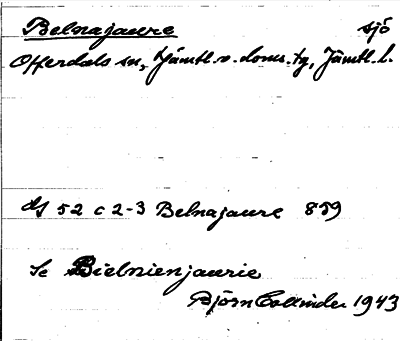 Belnajaure sjö
Offerdals sn, Jämtl. v. doms. tg, Jämtl. l.
df 52 c 2-3 Belnajaure 859
Se Bielnienjaurie
Björn Collinder 1943